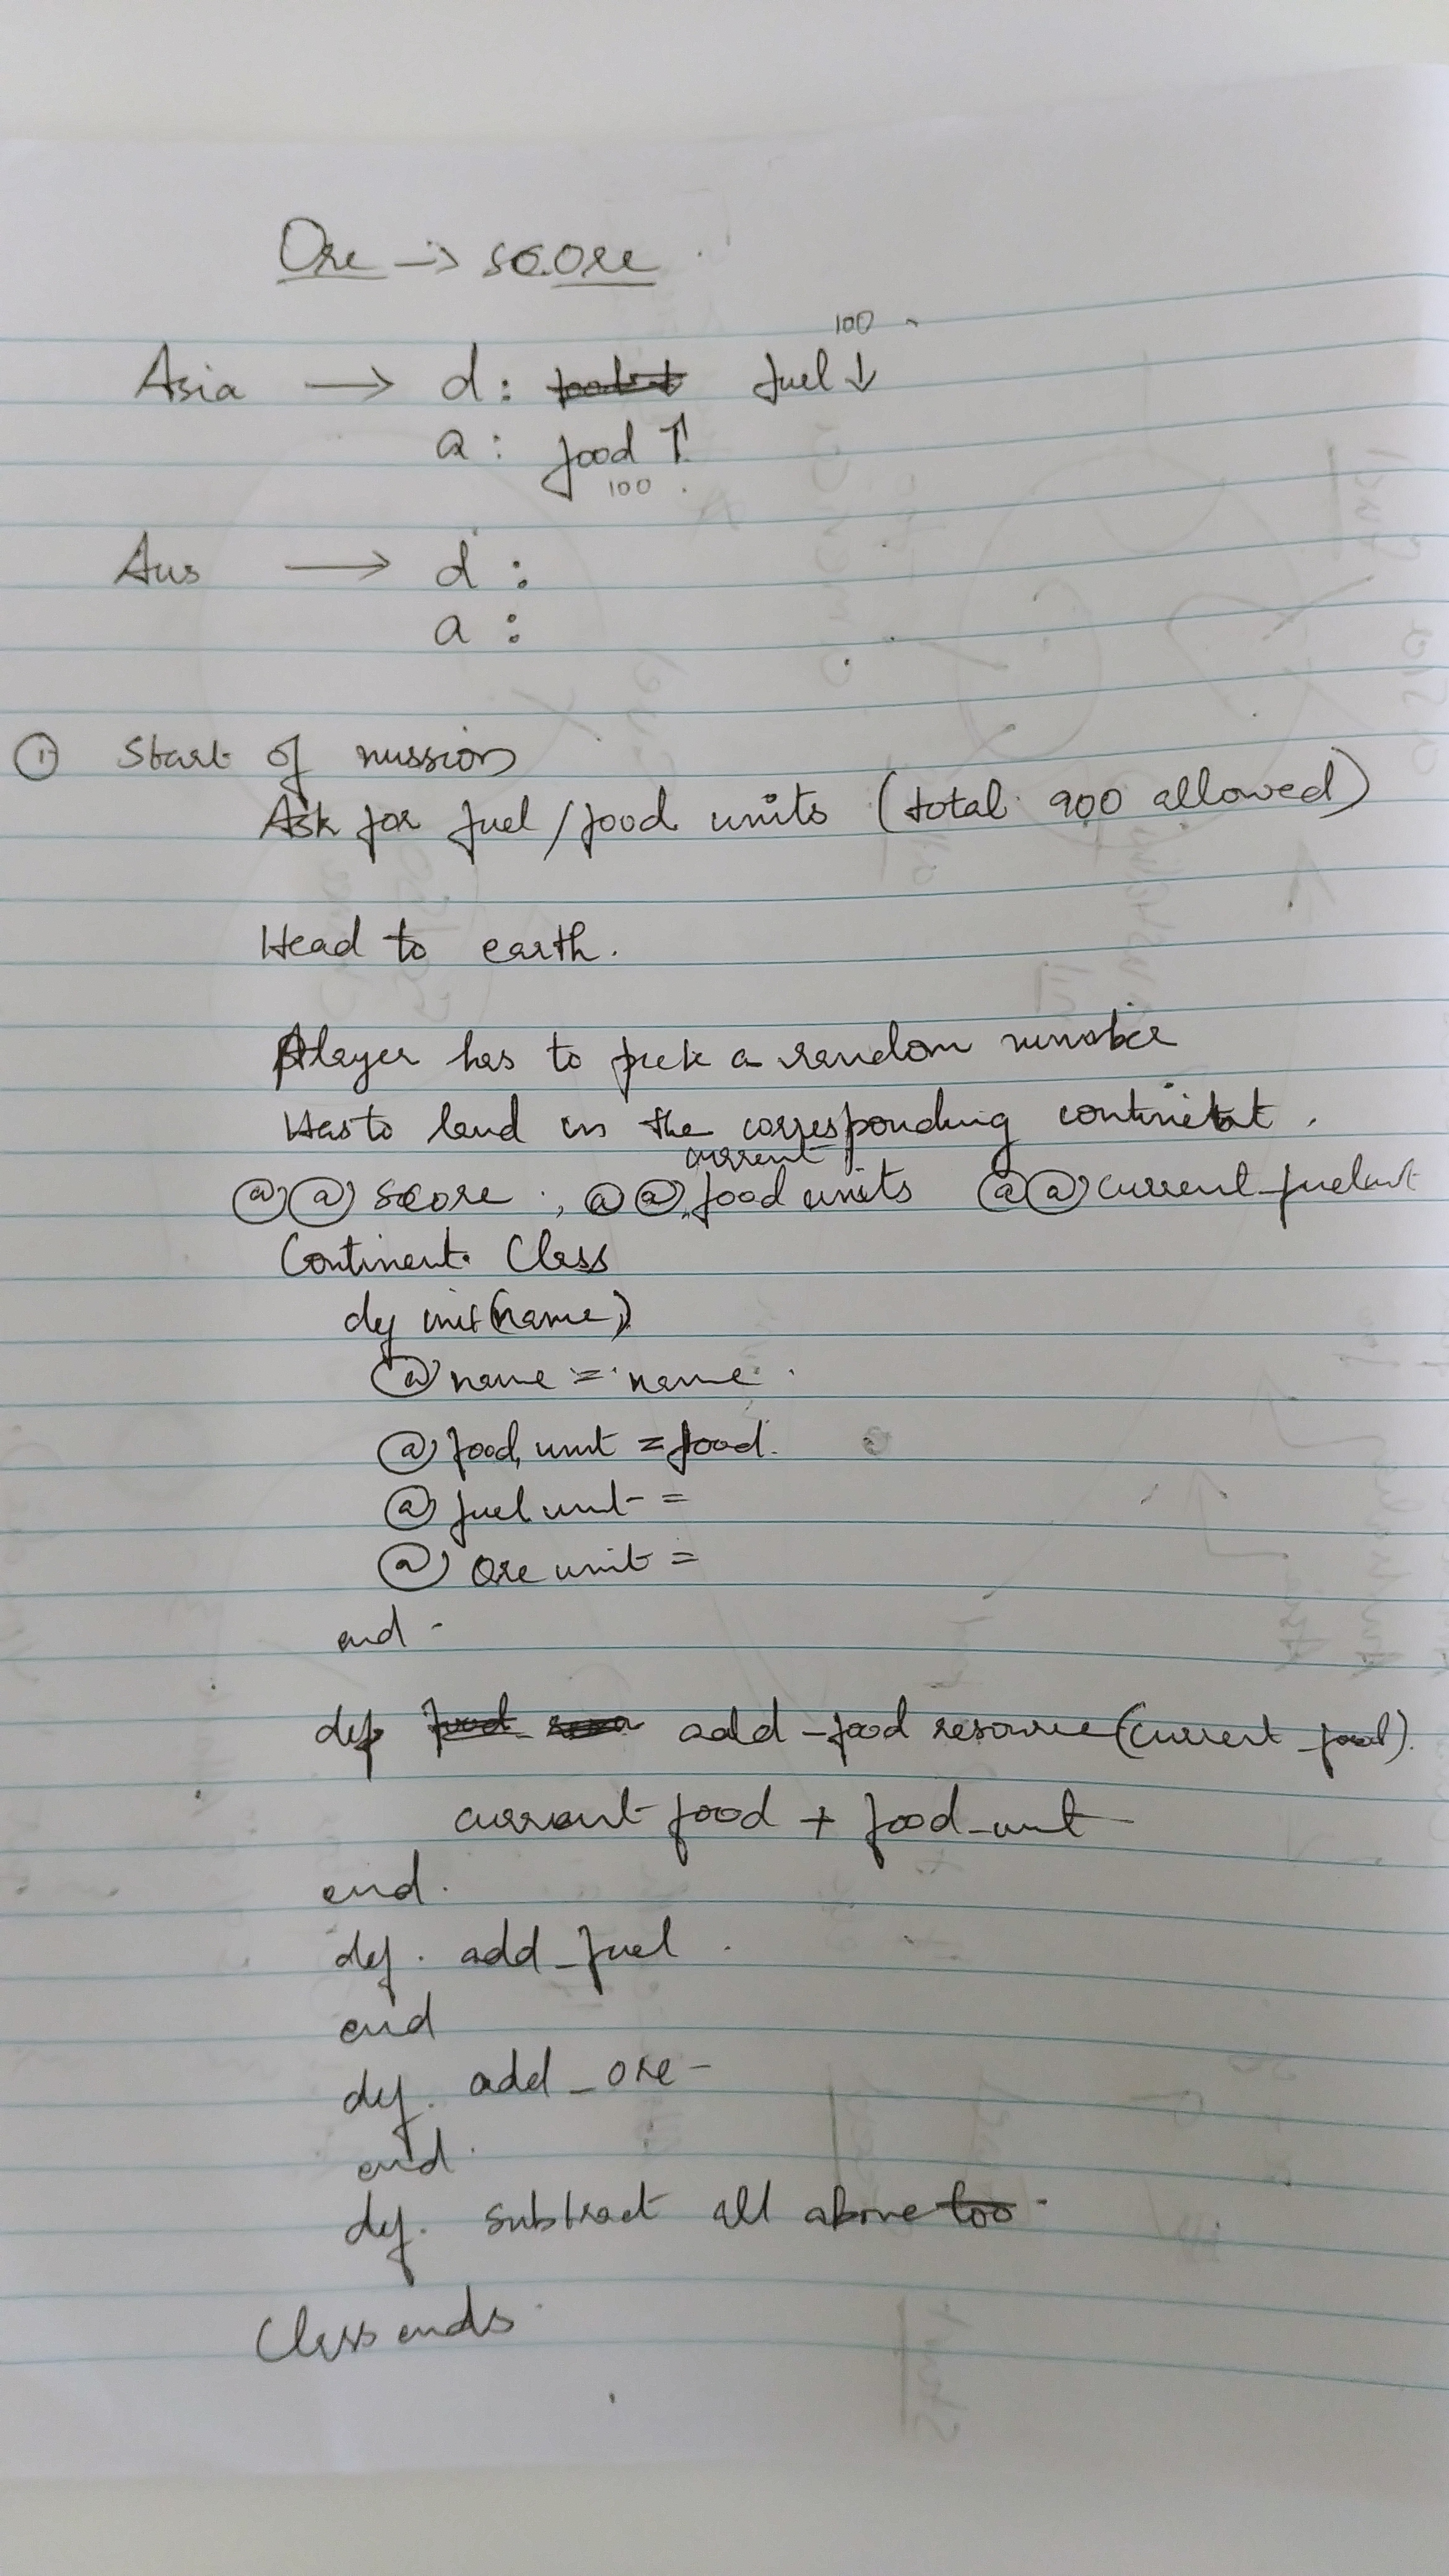 Ore -> score
100
Asia -> d: fuel ↓
a: food ↑
100
Aus -> d:
a:
① Start of mission
Ask for fuel/food units (total 900 allowed)
Head to earth.
Player has to pick a random number
Has to land in the corresponding continent.
current
@@ score ; @@ food units @@ current_fuel unit
Continent Class
def init(name)
@ name = name
@ food unit = food.
@ fuel unit =
@ Ore unit =
end
def add_food resource(current_food).
current food + food_unit
end.
def. add_fuel
end
def. add_ore
end
def. subtract all above too
Class ends